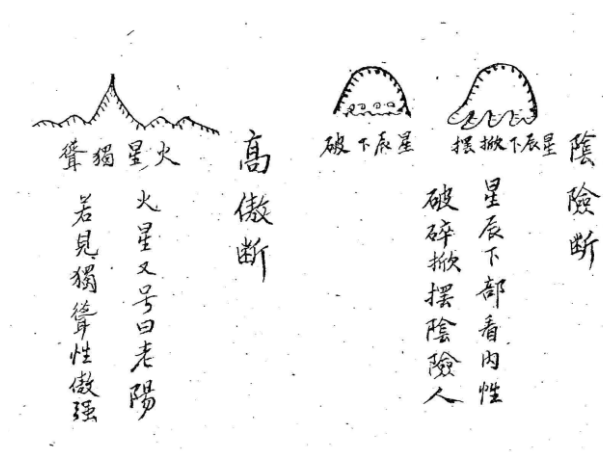 陰險断
星辰下掀摆
星辰下破
星辰下部看内性
破碎掀摆陰險人
高傲断
火星獨聳
火星又号曰老陽
若見獨聳性傲强